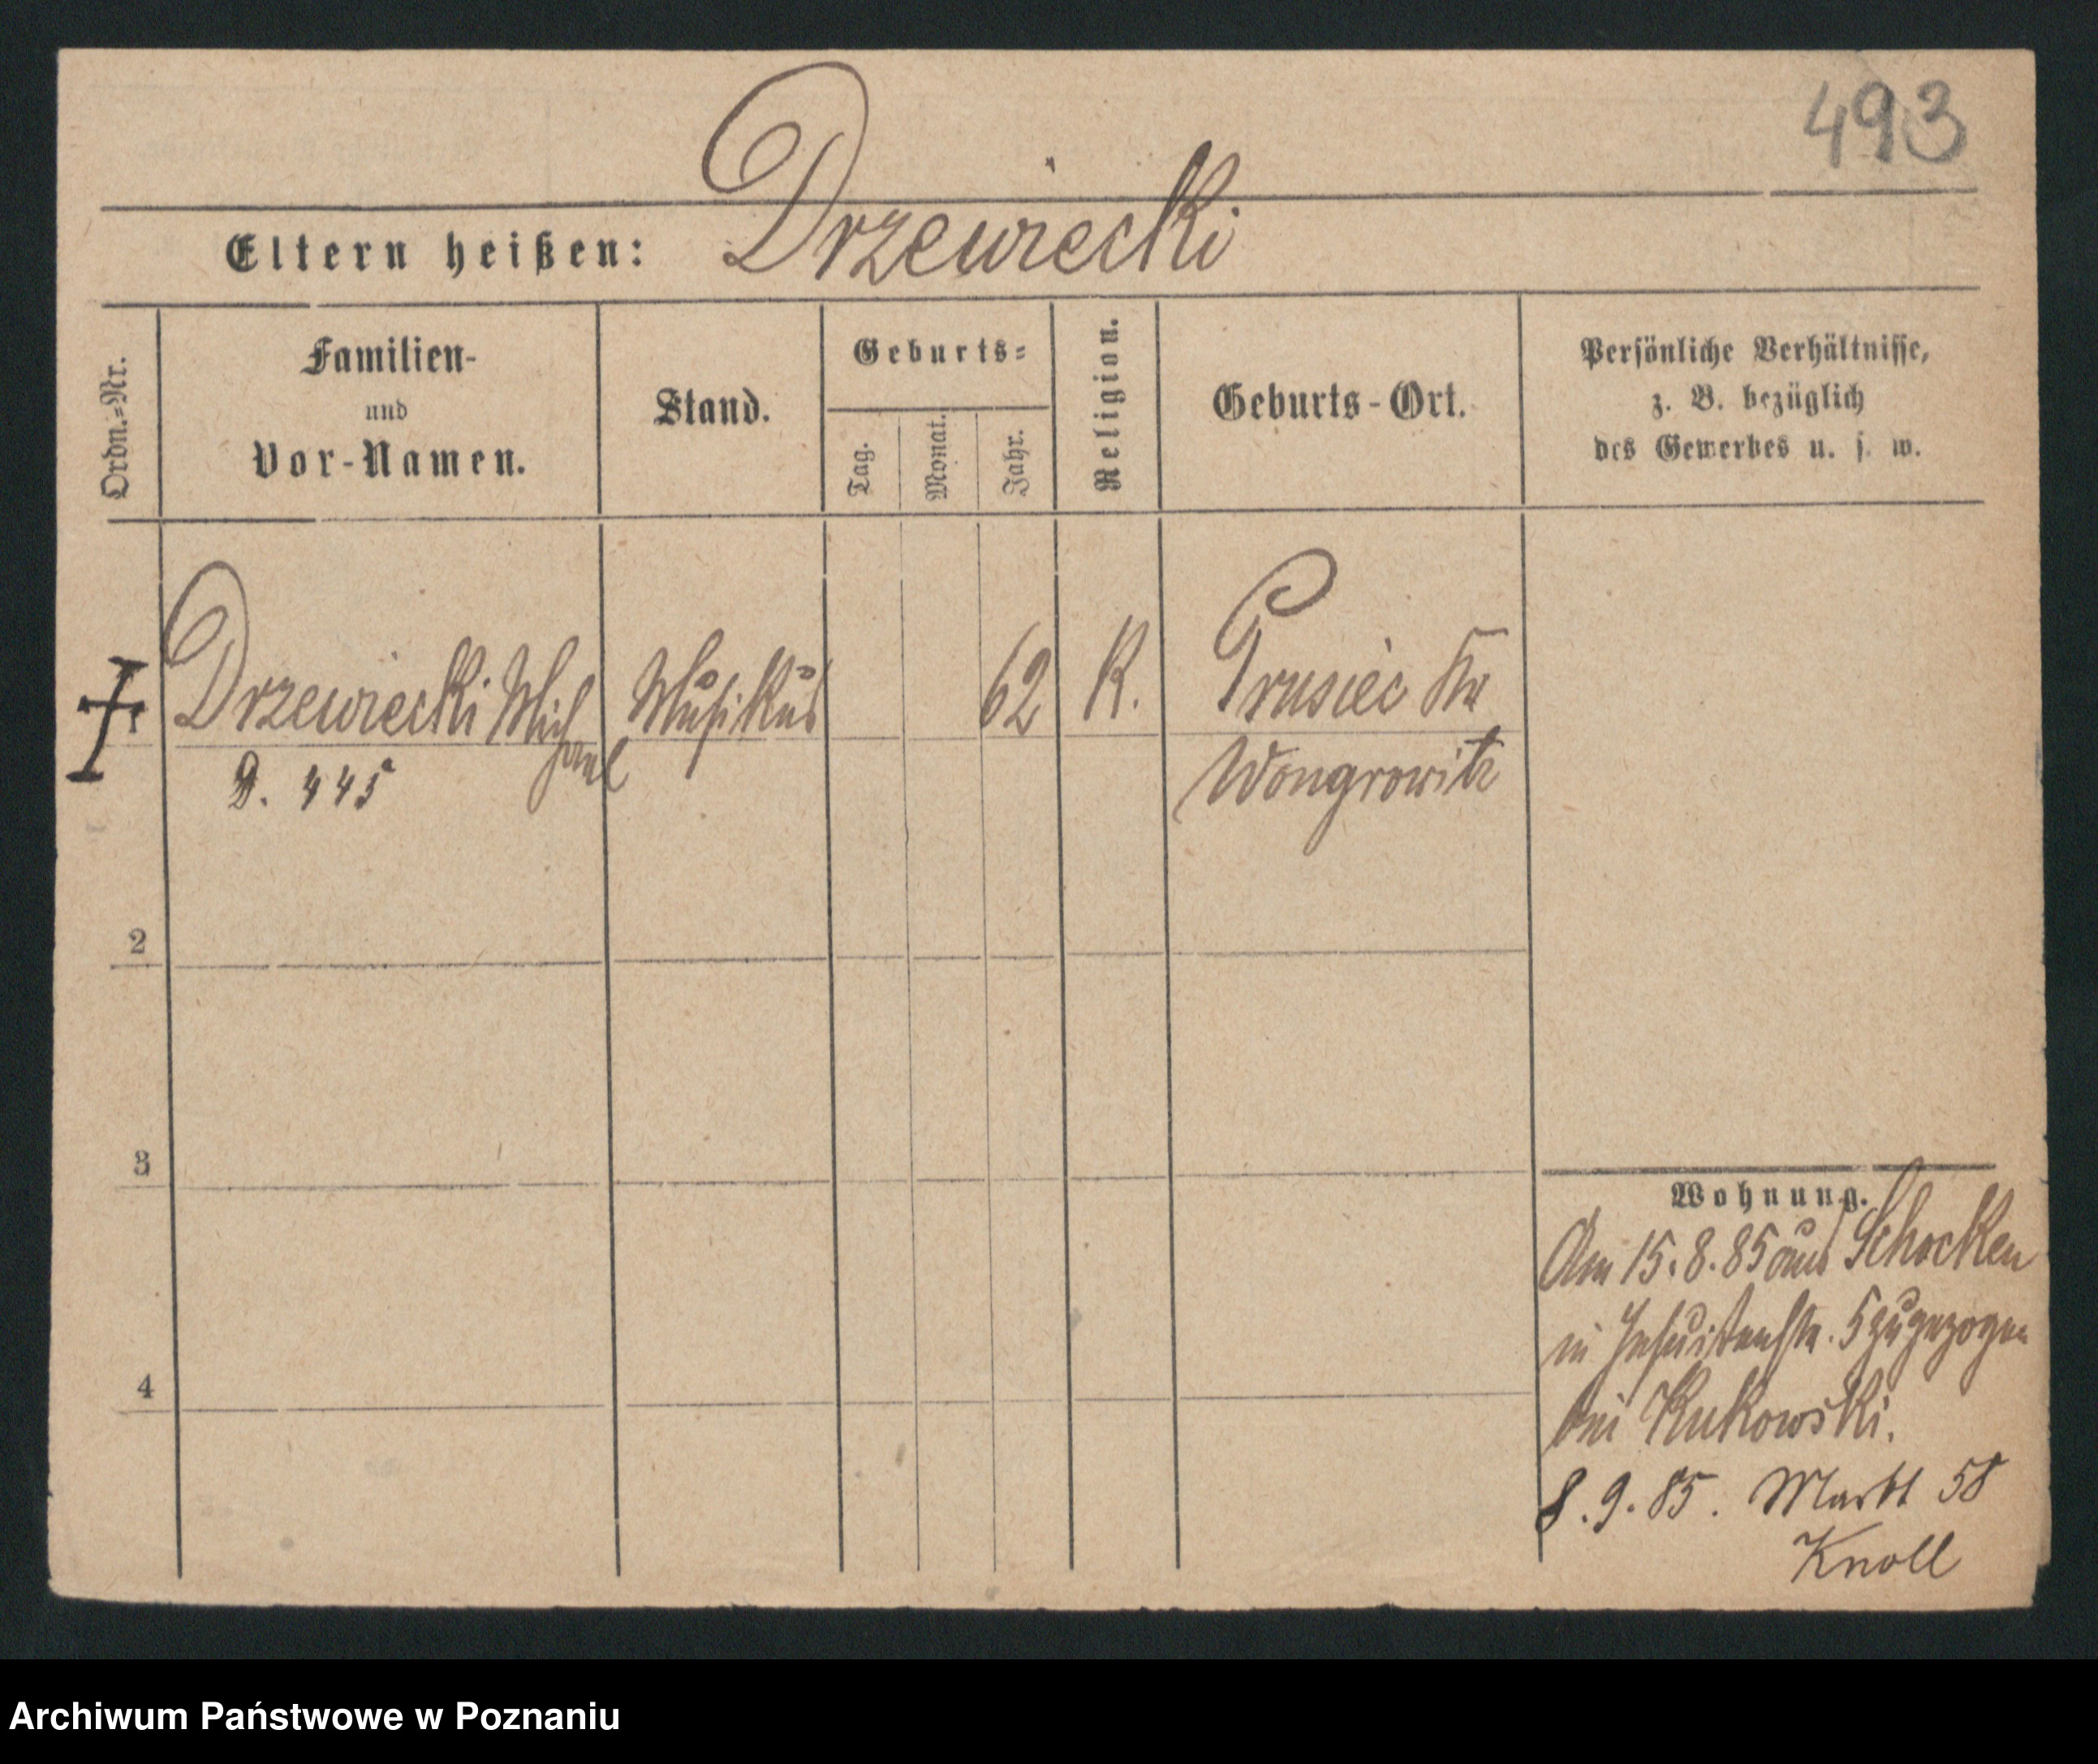 493
Drzewiecki
Eltern heißen:
Ordn.=Nr.
Familien-
und
Vor-Namen.
Stand.
Geburts=
Tag.
Monat.
Jahr.
Religion.
Geburts-Ort.
Persönliche Verhältnisse,
z. B. bezüglich
des Gewerbes u. s. w.
1
Drzewiecki Michael
Musikus
62
K.
Prusiec Kr
Wongrowitz
D. 445
2
3
4
Wohnung.
Am 15.8.85 aus Schocken
in Jesuitenstr. 5 zugezogen
bei Kukowski.
8.9.85. Markt 58
Knoll
Archiwum Państwowe w Poznaniu